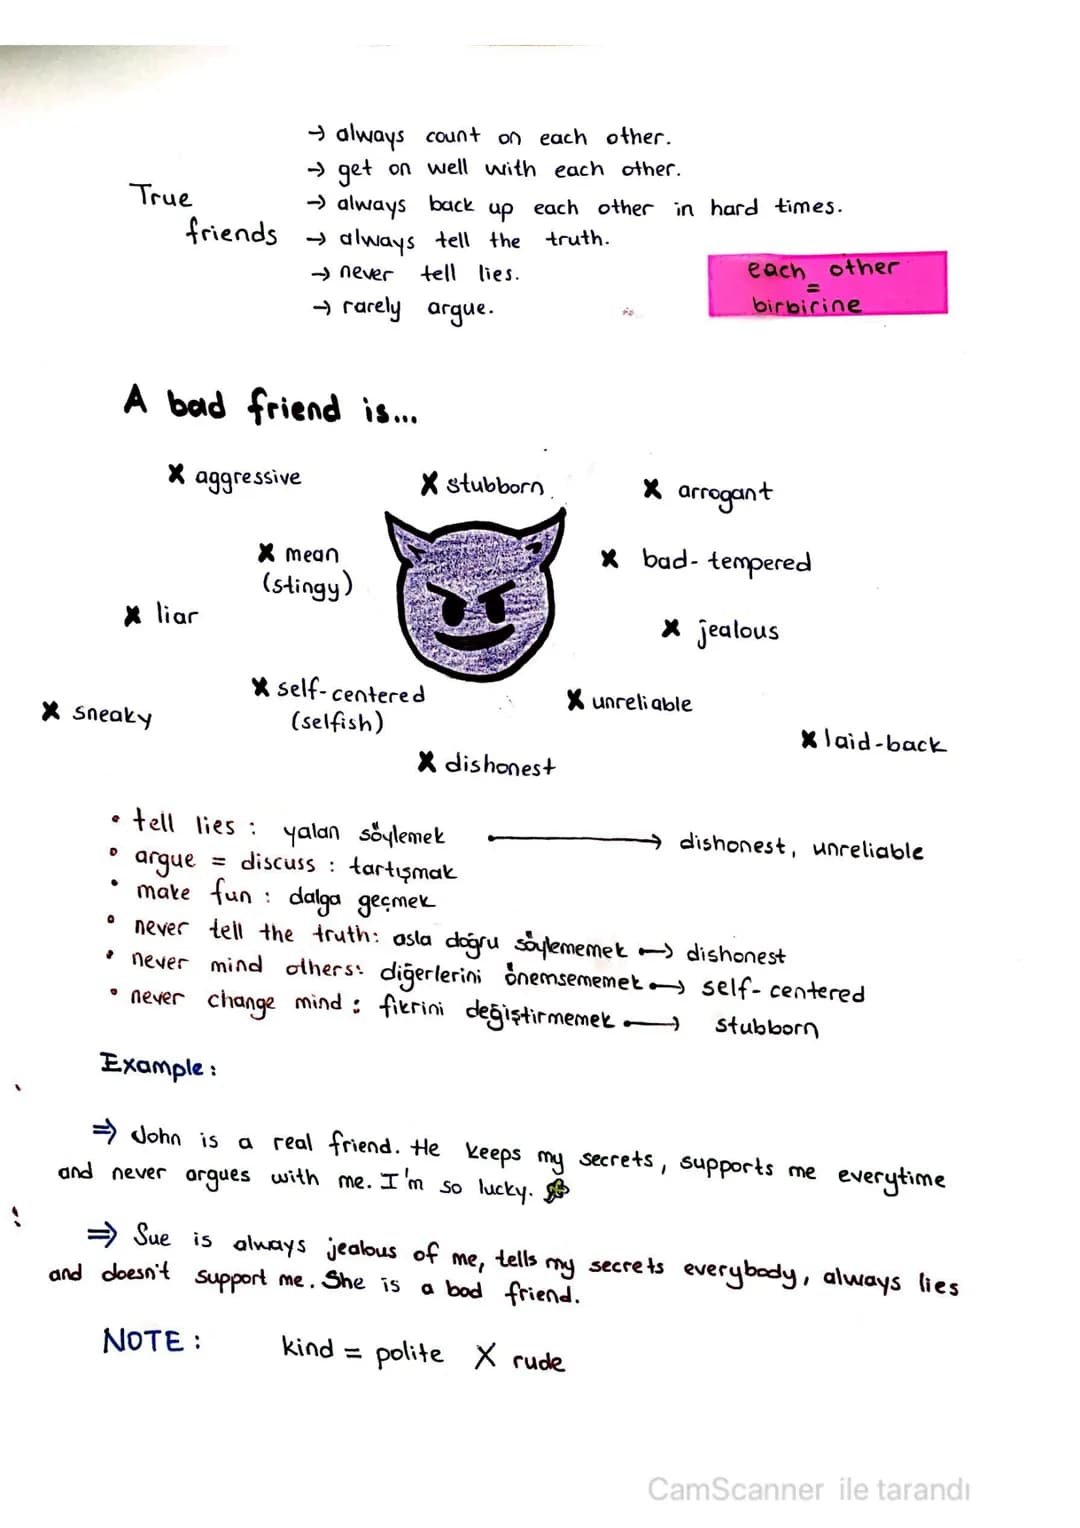 → always count on each other.
→ get on well with each other.
True
→ always back up each other in hard times.
friends
→ always tell the truth.
→ never tell lies.
→ rarely argue.
each other
=
birbirine
A bad friend is...
X aggressive
X stubborn
X arrogant
X mean
(stingy)
X bad-tempered
X liar
X jealous
X self-centered
(selfish)
X unreliable
X sneaky
X laid-back
X dishonest
• tell lies : yalan söylemek → dishonest, unreliable
• argue = discuss : tartışmak
• make fun : dalga geçmek
• never tell the truth: asla doğru söylememek → dishonest
• never mind others: diğerlerini önemsememek → self-centered
• never change mind : fikrini değiştirmemek → stubborn
Example :
⇒ John is a real friend. He keeps my secrets, supports me everytime
and never argues with me. I'm so lucky. 🍀
⇒ Sue is always jealous of me, tells my secrets everybody, always lies
and doesn't support me. She is a bad friend.
NOTE : kind = polite X rude
CamScanner ile tarandı